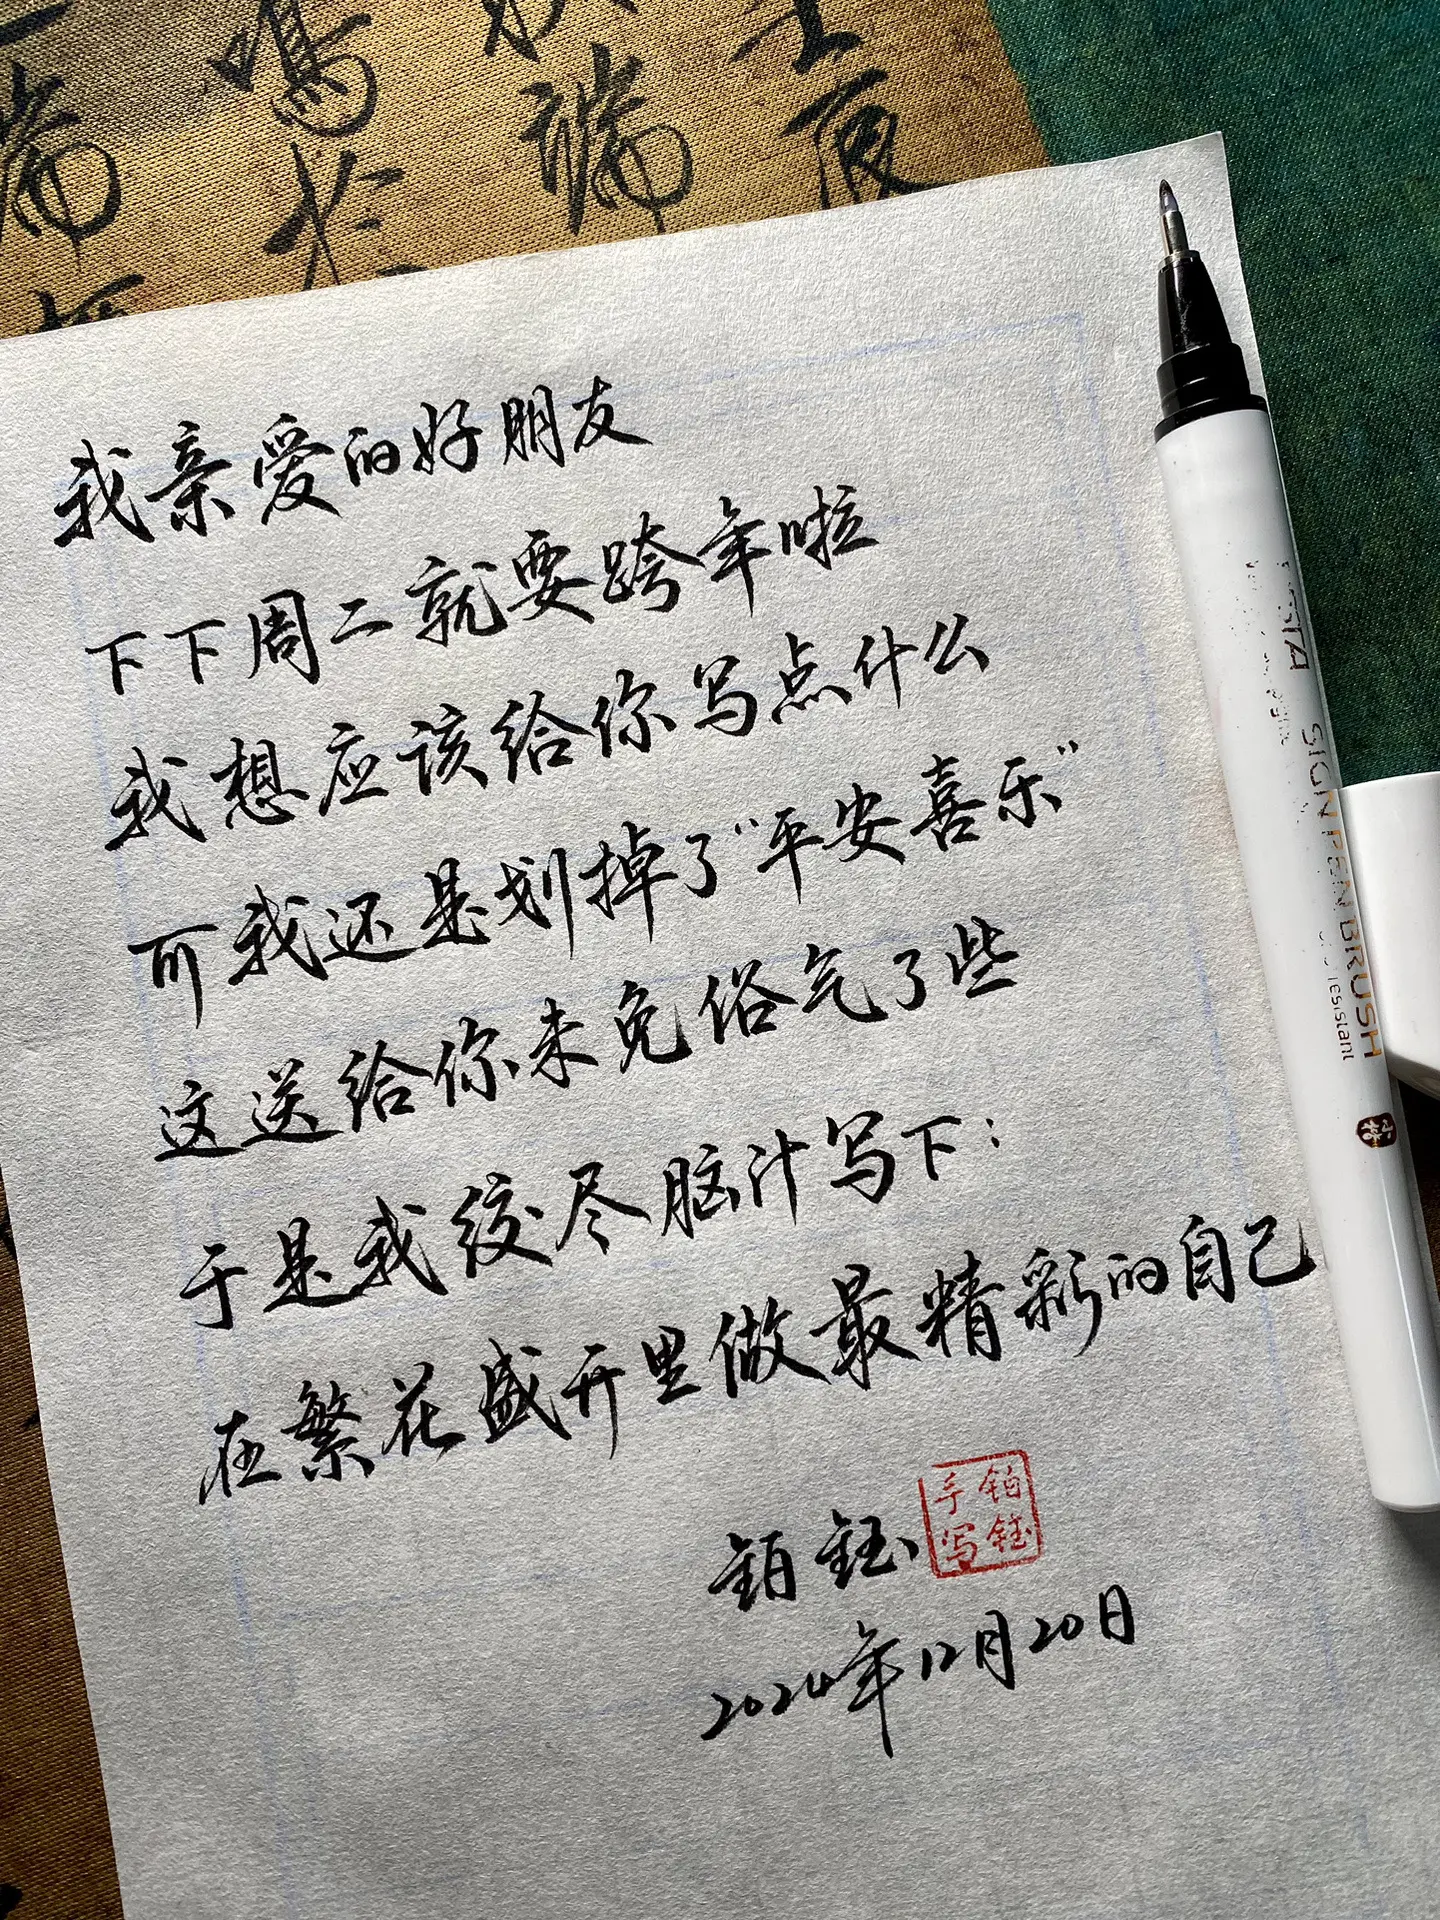 我亲爱的好朋友
下下周二就要跨年啦
我想应该给你写点什么
可我还是划掉了“平安喜乐”
这送给你未免俗气了些
于是我绞尽脑汁写下：
在繁花盛开里做最精彩的自己
铂钰
铂钰手写
2024年12月20日
SIGN PEN BRUSH